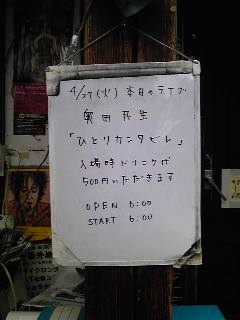 4/27(火) 本日のライブ
奥田 民生
「ひとりカンタビレ」
入場時ドリンク代
500円いただきます
OPEN 6:00
START 6:00